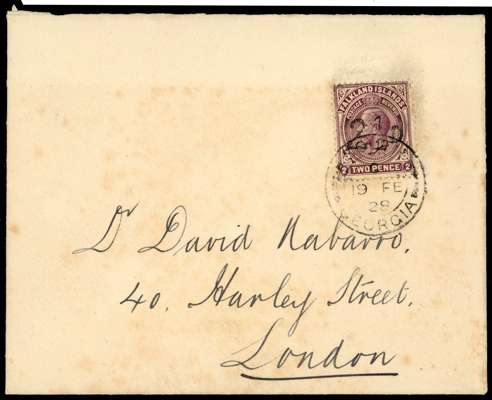 FALKLAND ISLANDS
POSTAGE REVENUE
2 TWO PENCE 2
19 FE
28
GEORGIA
Dr David Nabarro,
40, Harley Street,
London